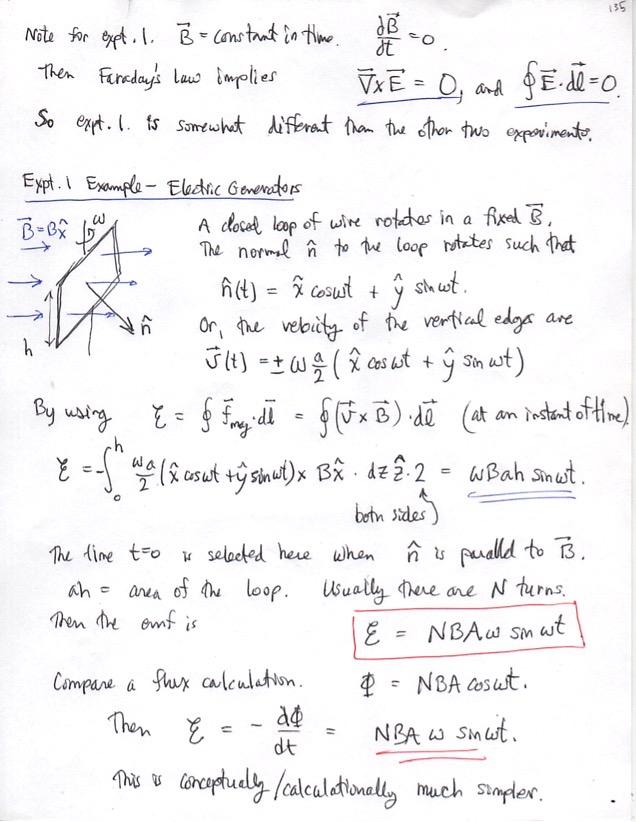 135
Note for expt. 1. B⃗ = constant in time. ∂B⃗/∂t = 0.
Then Faraday's Law implies ∇⃗×E⃗ = 0, and ∮E⃗·dl⃗ = 0.
So expt. 1. is somewhat different than the other two experiments.
Expt. 1 Example – Electric Generators
B⃗ = Bx̂
ω
h
n̂
A closed loop of wire rotates in a fixed B⃗.
The normal n̂ to the loop rotates such that
n̂(t) = x̂ cosωt + ŷ sinωt.
Or, the velocity of the vertical edges are
v⃗(t) = ± ω a/2 ( x̂ cos ωt + ŷ sin ωt)
By using ℰ = ∮ f⃗mag·dl⃗ = ∮(v⃗×B⃗)·dl⃗ (at an instant of time)
ℰ = -∫₀ʰ ωa/2 (x̂ cosωt + ŷ sinωt) × Bx̂ · dz ẑ·2 = ωBah sinωt.
both sides)
The time t=0 is selected here when n̂ is parallel to B⃗.
ah = area of the loop. Usually there are N turns.
Then the emf is ℰ = NBAω sin ωt
Compare a flux calculation. Φ = NBA cosωt.
Then ℰ = - dΦ/dt = NBA ω sinωt.
This is conceptually/calculationally much simpler.